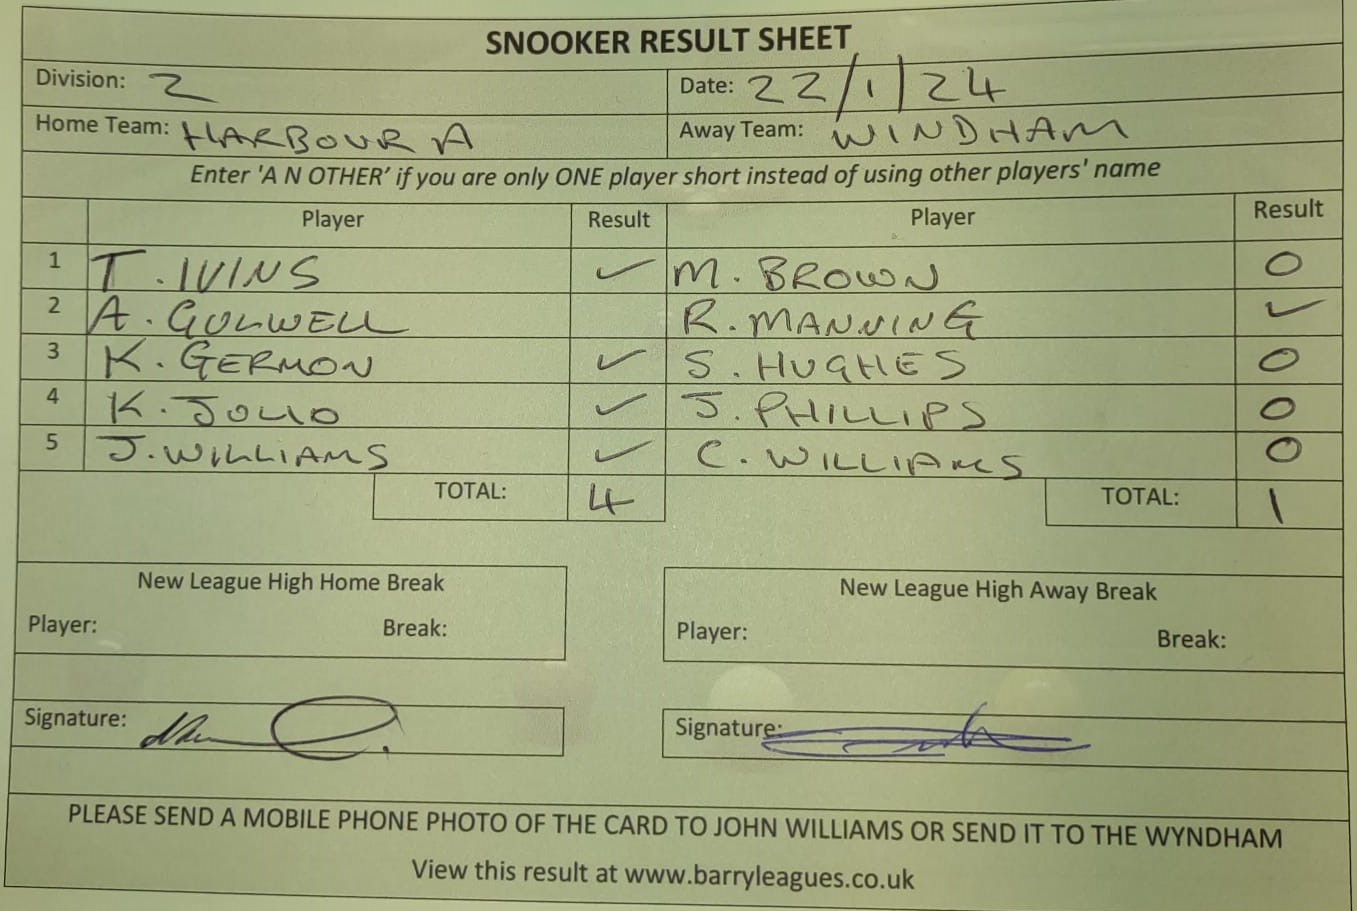 SNOOKER RESULT SHEET
Division: 2 Date: 22/1/24
Home Team: HARBOUR A Away Team: WINDHAM
Enter 'A N OTHER' if you are only ONE player short instead of using other players' name
Player Result Player Result
1 T. IVINS ✓ M. BROWN 0
2 A. GULWELL R. MANNING ✓
3 K. GERMON ✓ S. HUGHES 0
4 K. ✓ J. PHILLIPS 0
5 J. WILLIAMS ✓ C. WILLIAMS 0
TOTAL: 4 TOTAL: 1
New League High Home Break New League High Away Break
Player: Break: Player: Break:
Signature: Signature:
PLEASE SEND A MOBILE PHONE PHOTO OF THE CARD TO JOHN WILLIAMS OR SEND IT TO THE WYNDHAM
View this result at www.barryleagues.co.uk